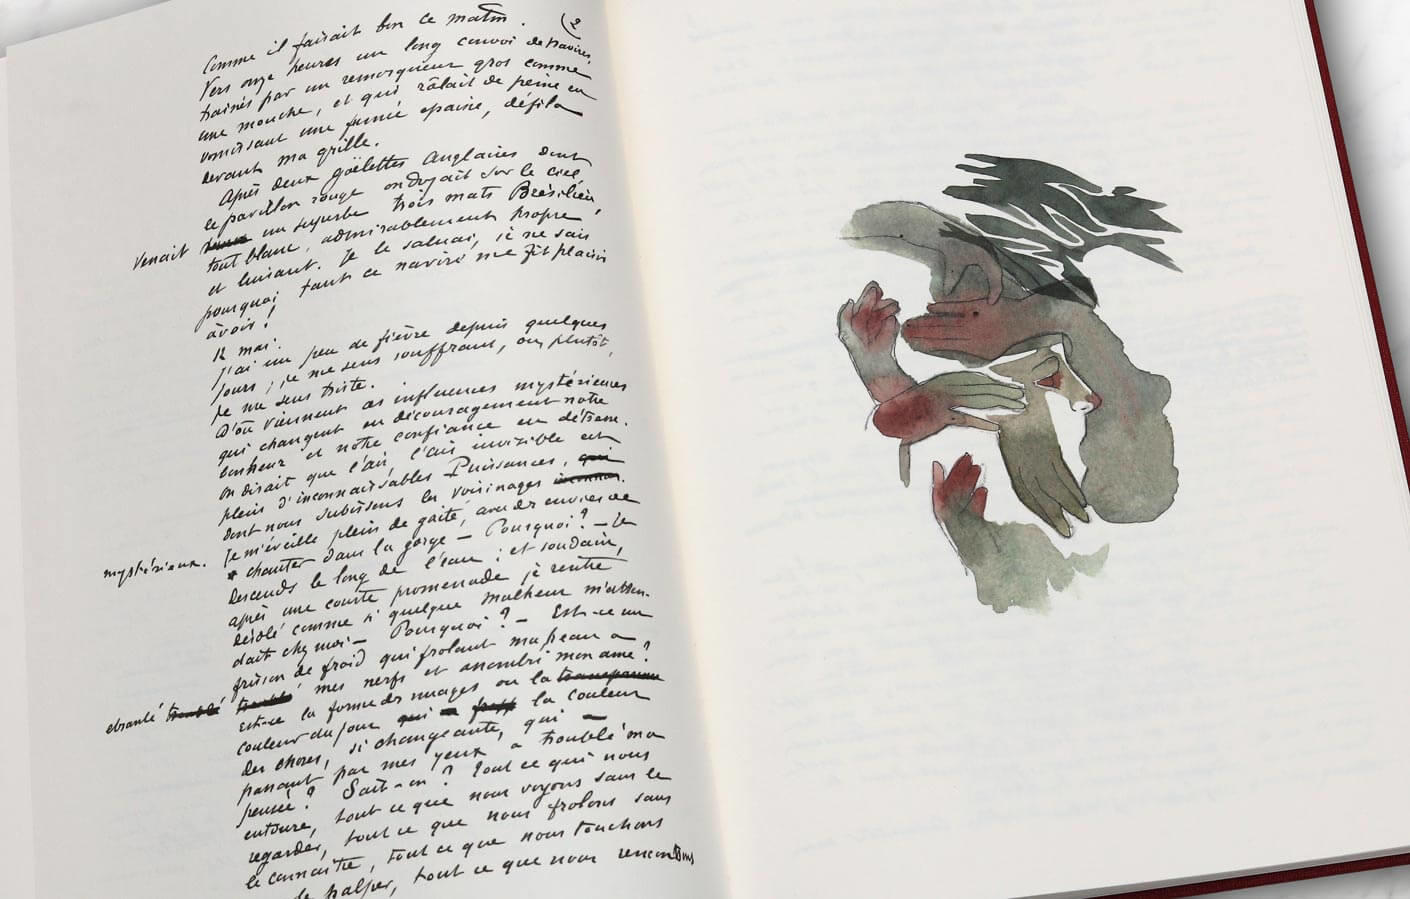 Comme il faisait bon ce matin. (2
Vers onze heures un long convoi de navires,
trainés par un remorqueur gros comme
une mouche, et qui râlait de peine en
vomissant une fumée épaisse, défila
devant ma grille.
Après deux goëlettes Anglaises dont
le pavillon rouge ondoyait sur le ciel,
venait un superbe trois mats Brésilien,
tout blanc, admirablement propre
et luisant. Je le saluai, je ne sais
pourquoi, tant ce navire me fit plaisir
à voir !
12 mai.
J'ai un peu de fièvre depuis quelques
jours ; je me sens souffrant, ou plutôt,
je me sens triste.
D'où viennent ces influences mystérieuses
qui changent en découragement notre
bonheur et notre confiance en détresse.
On dirait que l'air, l'air invisible est
plein d'inconnaissables Puissances, qui
dont nous subissons les voisinages inconnus.
mystérieux. Je m'éveille plein de gaité, avec des envies de
chanter dans la gorge — Pourquoi ? — Je
descends le long de l'eau ; et soudain,
après une courte promenade je rentre
désolé comme si quelque malheur m'atten-
dait chez moi — Pourquoi ? — Est-ce un
frisson de froid qui frolant ma peau a
ebranlé troublé troublé mes nerfs et assombri mon ame ?
Est-ce la forme des nuages ou la
couleur du jour qui la couleur
des choses, si changeante, qui
passant par mes yeux a troublé ma
pensée ? Sait-on ? Tout ce qui nous
entoure, tout ce que nous voyons sans le
regarder, tout ce que nous frolons sans
le connaitre, tout ce que nous touchons
le palper, tout ce que nous rencontrons